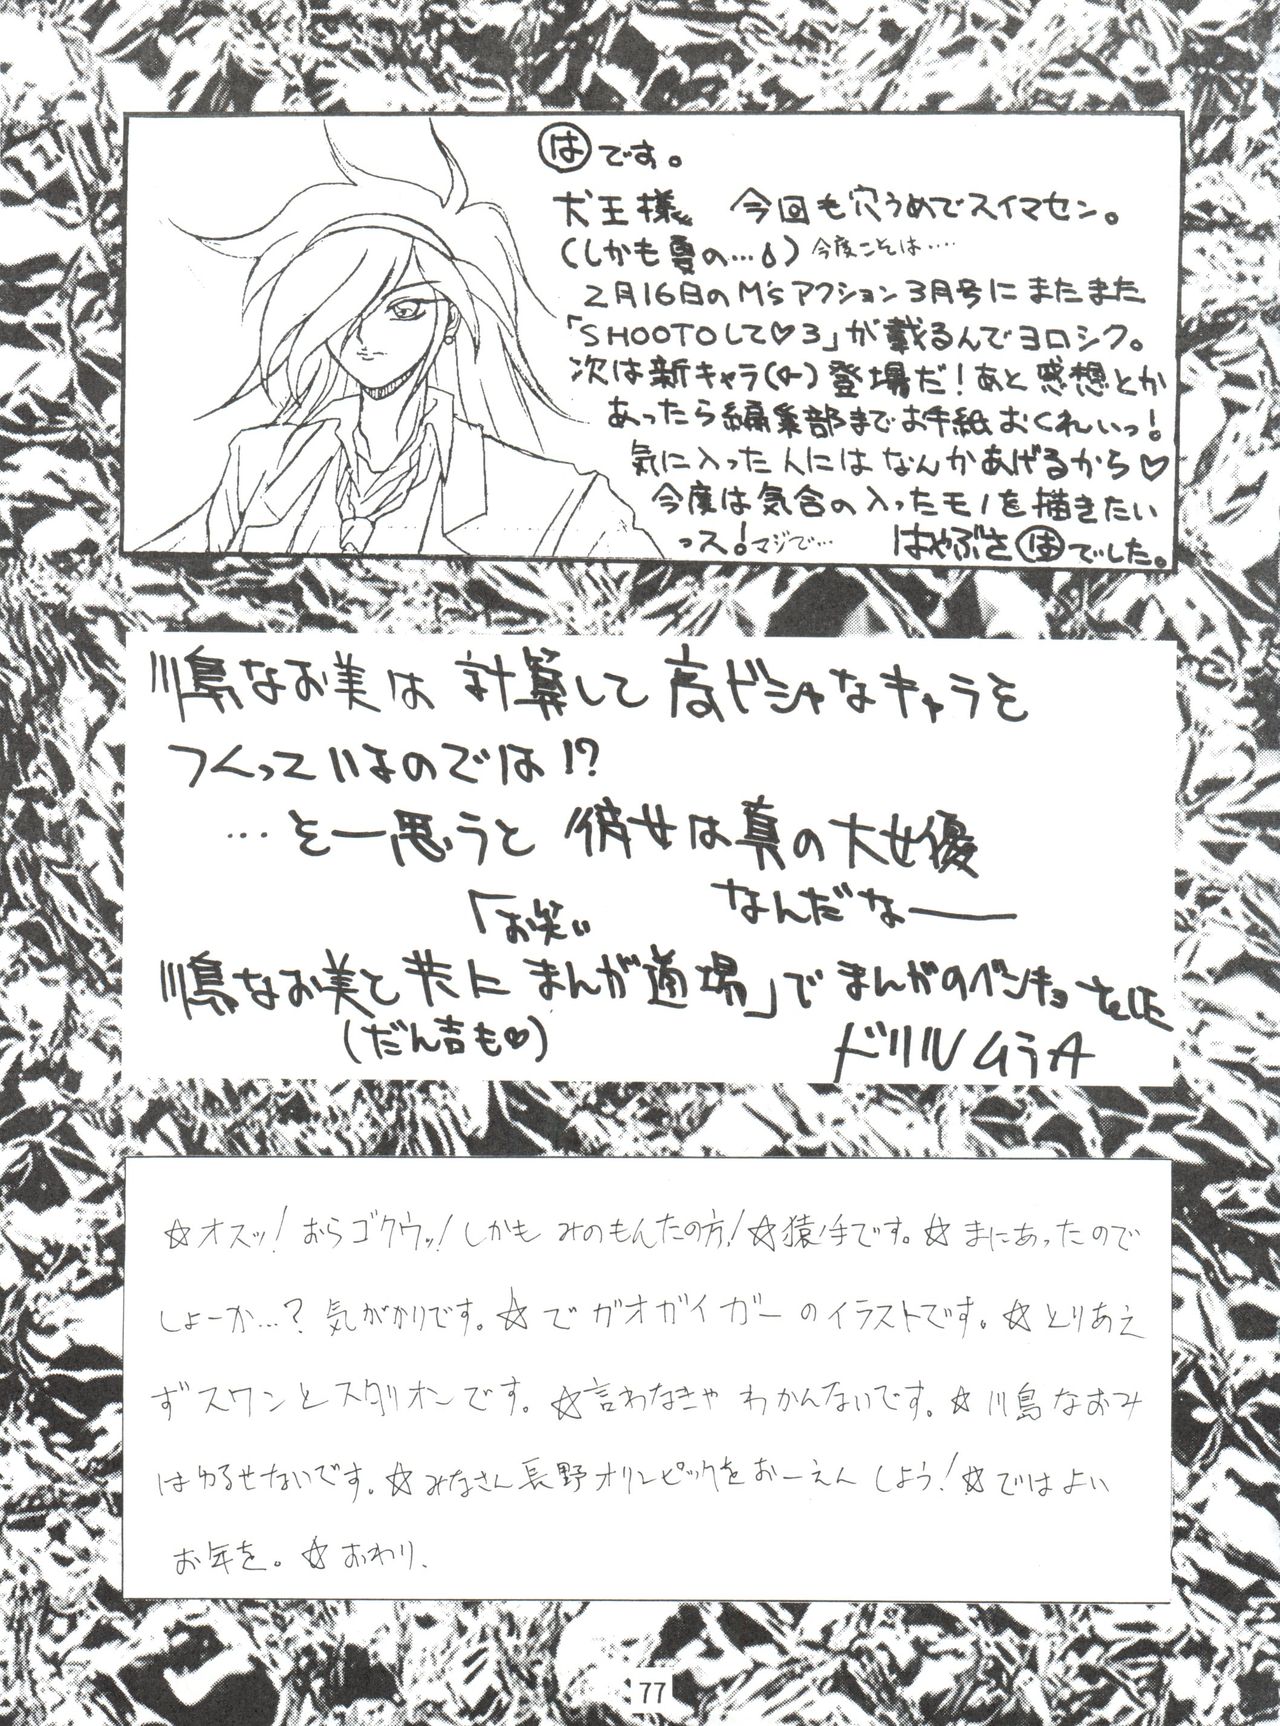 はです。
犬王様 今回も穴うめでスイマセン。
(しかも夏の…) 今度こそは‥‥
2月16日のM'sアクション3月号にまたまた
「SHOOTOして♡3」が載るんでヨロシク。
次は新キャラ(♀)登場だ!あと感想とか
あったら編集部までお手紙おくれいっ!
気に入った人にはなんかあげるから♡
今度は気合の入ったモノを描きたい
っス!マジで… はやぶさはでした。
川島なお美は計算して高ビシャなキャラを
つくっているのでは!?
…と一思うと彼女は真の大女優
なんだなー
「お笑い
川島なお美と共に まんが道場」でまんがのベンキョをした
(だん吉も♡)
ドリルムラA
☆オスッ!おらゴクウッ!しかもみのもんたの方!☆猿ノ手です。☆まにあったので
しょーか…?気がかりです。☆でガオガイガーのイラストです。☆とりあえ
ずスワンとスタリオンです。☆言わなきゃわかんないです。☆川島なおみ
はゆるせないです。☆みなさん長野オリンピックをおーえんしよう!☆ではよい
お年を。☆おわり、
77